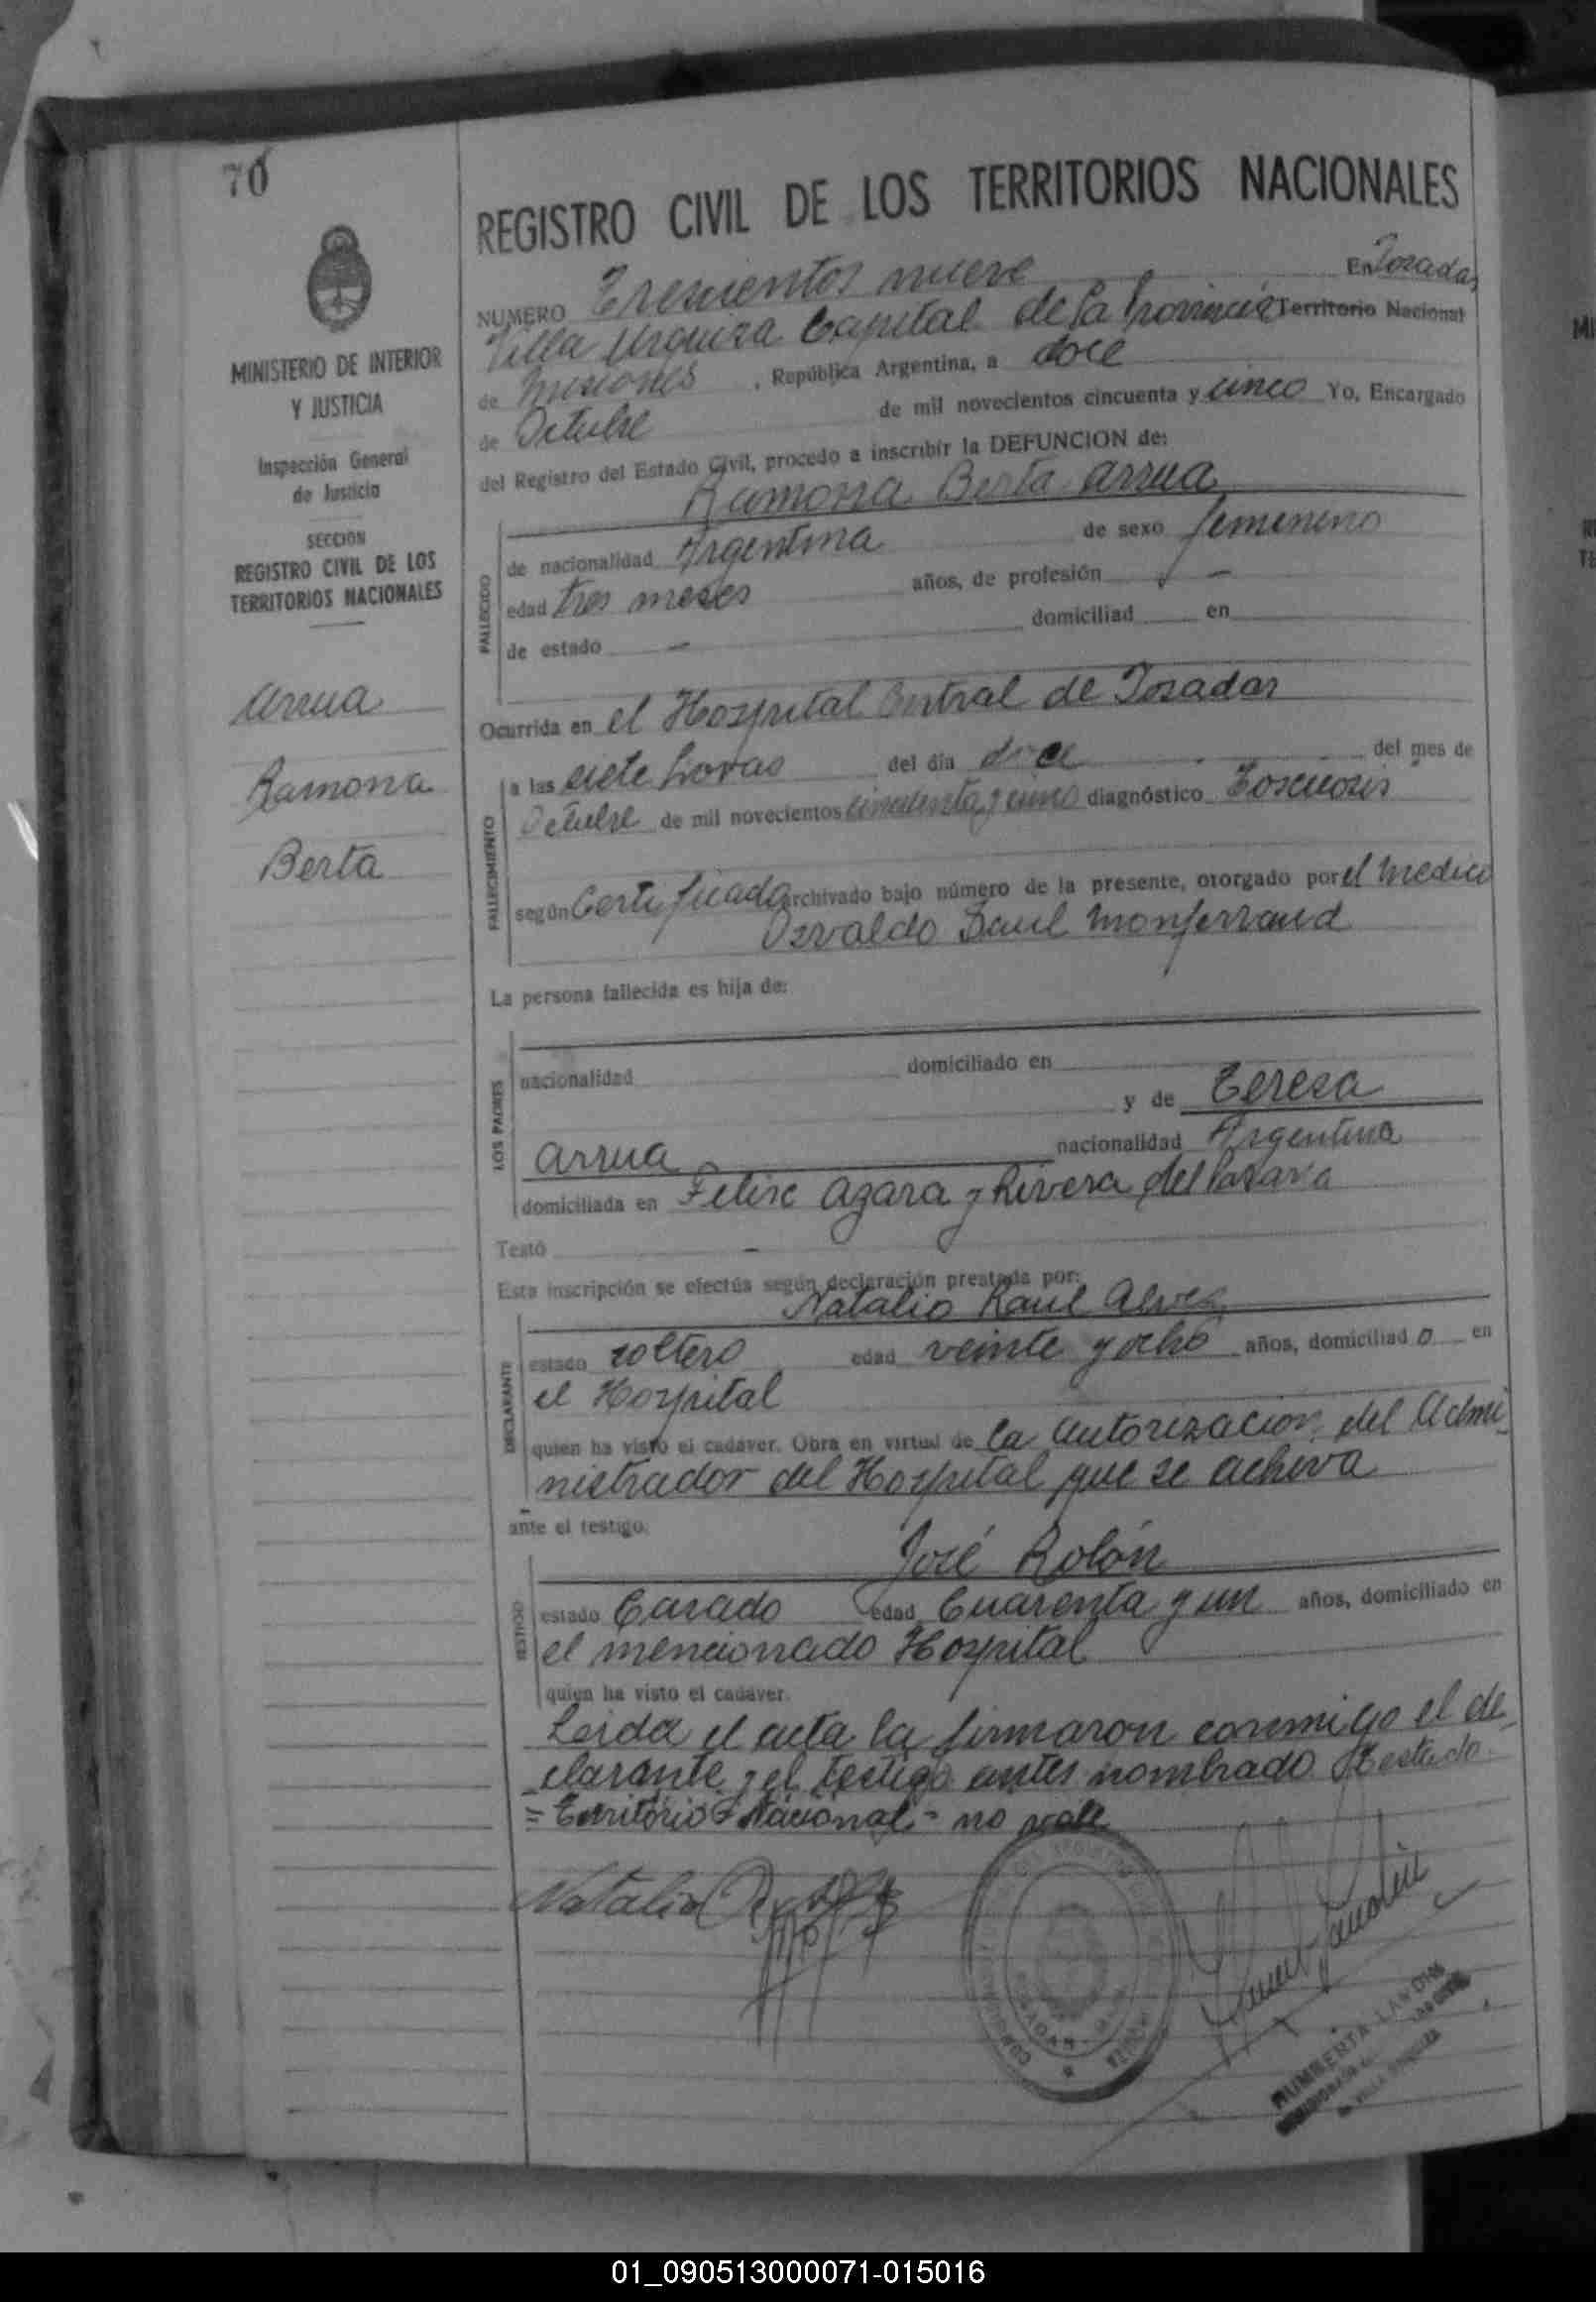 70
MINISTERIO DE INTERIOR
Y JUSTICIA
Inspección General
de Justicia
SECCION
REGISTRO CIVIL DE LOS
TERRITORIOS NACIONALES
Arrua
Ramona
Berta
REGISTRO CIVIL DE LOS TERRITORIOS NACIONALES
NUMERO Trescientos nueve En Posadas
Villa Urquiza Capital de la Provincia Territorio Nacional
de Misiones, República Argentina, a doce
de Octubre de mil novecientos cincuenta y cinco Yo, Encargado
del Registro del Estado Civil, procedo a inscribir la DEFUNCION de:
Ramona Berta Arrua
FALLECIDO
de nacionalidad Argentina de sexo femenino
edad tres meses años, de profesión -
de estado - domiciliad en
Ocurrida en el Hospital Central de Posadas
FALLECIMIENTO
a las siete horas del día doce del mes de
Octubre de mil novecientos cincuenta y cinco diagnóstico Toxicosis
según Certificado archivado bajo número de la presente, otorgado por el Medico
Osvaldo Raul Monferrand
La persona fallecida es hija de:
LOS PADRES
nacionalidad domiciliado en
y de Teresa
Arrua nacionalidad Argentina
domiciliada en Felix Azara y Rivera del Parana
Testó -
Esta inscripción se efectúa según declaración prestada por:
Natalio Raul Alvez
DECLARANTE
estado soltero edad veinte y ocho años, domiciliado en
el Hospital
quien ha visto el cadáver. Obra en virtud de la autorizacion del Admi-
nistrador del Hospital que se achiva
ante el testigo.
José Rolón
TESTIGO
estado Casado edad Cuarenta y un años, domiciliado en
el mencionado Hospital
quien ha visto el cadáver.
Leida el acta la firmaron conmigo el de-
clarante y el testigo antes nombrado Testado
"Territorio Nacional" no vale
Natalio
HUMBERTA LANDIN
VILLA URQUIZA
01_090513000071-015016